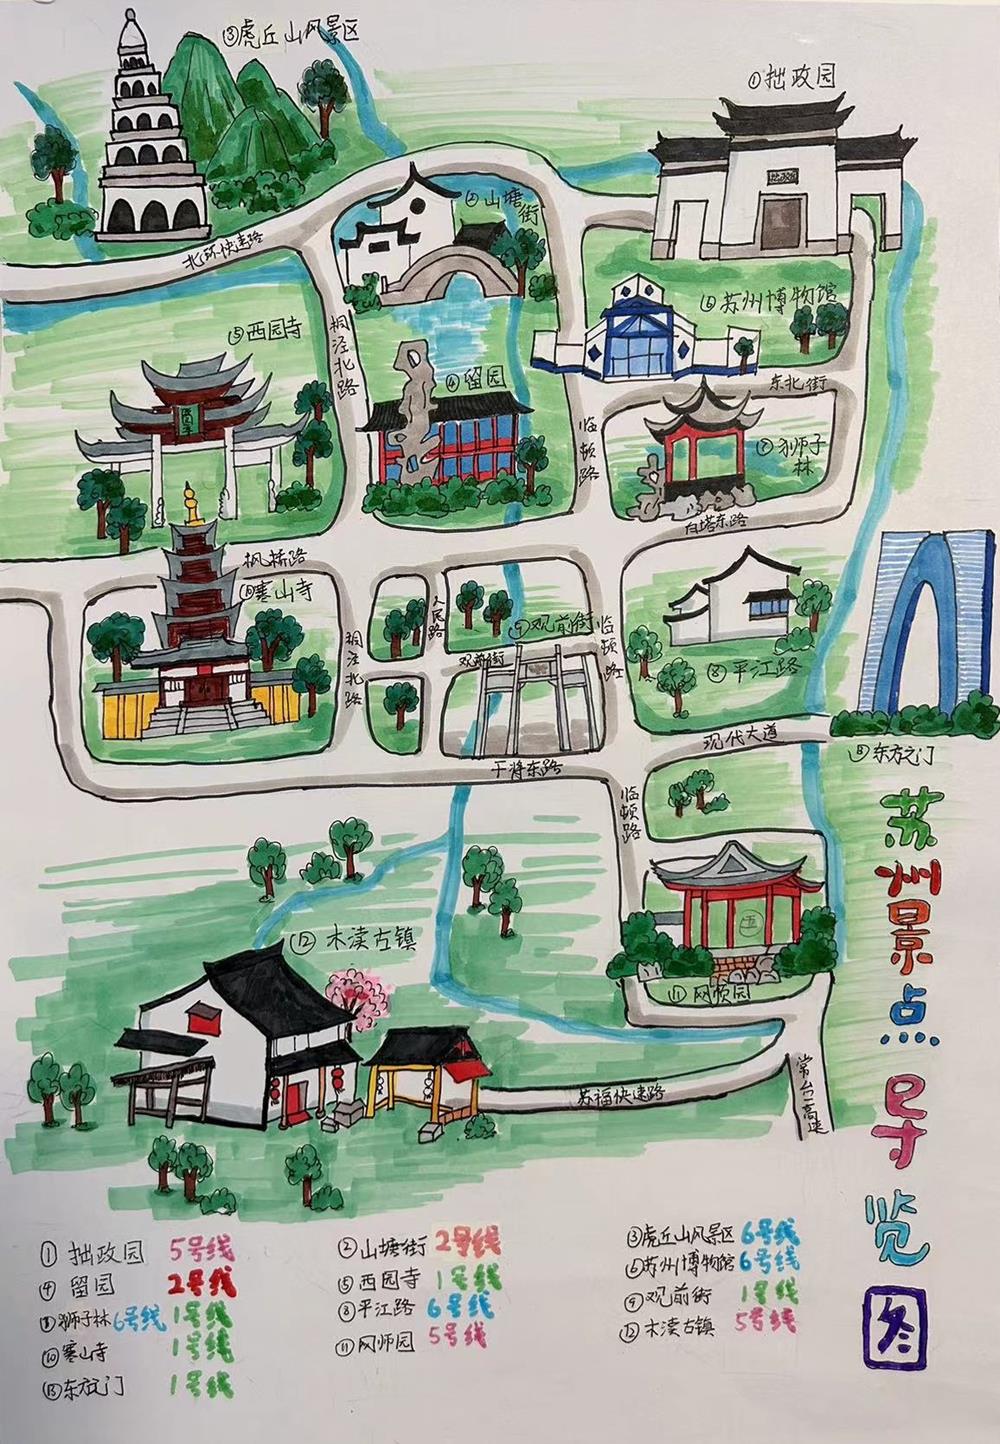 ③虎丘山风景区
①拙政园
拙政园
②山塘
街
北环快速路
⑥苏州博物馆
⑤西园寺
桐泾北路
④留园
东北街
临顿路
⑦狮子
林
白塔东路
枫桥路
⑩寒山寺
人民路
⑨观前街
观前街
临顿路
桐泾北路
⑧平江路
现代大道
⑬东方之门
干将东路
临顿路
苏州景点尺览图
⑫木渎古镇
⑪网师园
苏福快速路
常台高速
①拙政园 5号线
②山塘街 2号线
③虎丘山风景区 6号线
④留园 2号线
⑤西园寺 1号线
⑥苏州博物馆 6号线
狮子林 6号线 1号线
⑧平江路 6号线
⑨观前街 1号线
⑩寒山寺 1号线
⑪网师园 5号线
⑫木渎古镇 5号线
⑬东方之门 1号线